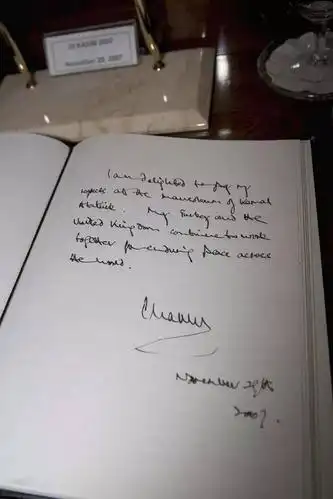 29 KASIM 2007
November 29, 2007
I am delighted to pay my
respects at the mausoleum of Kemal
Atatürk. May Turkey and the
United Kingdom continue to work
together for enduring peace across
the world.
Charles
November 29th
2007.